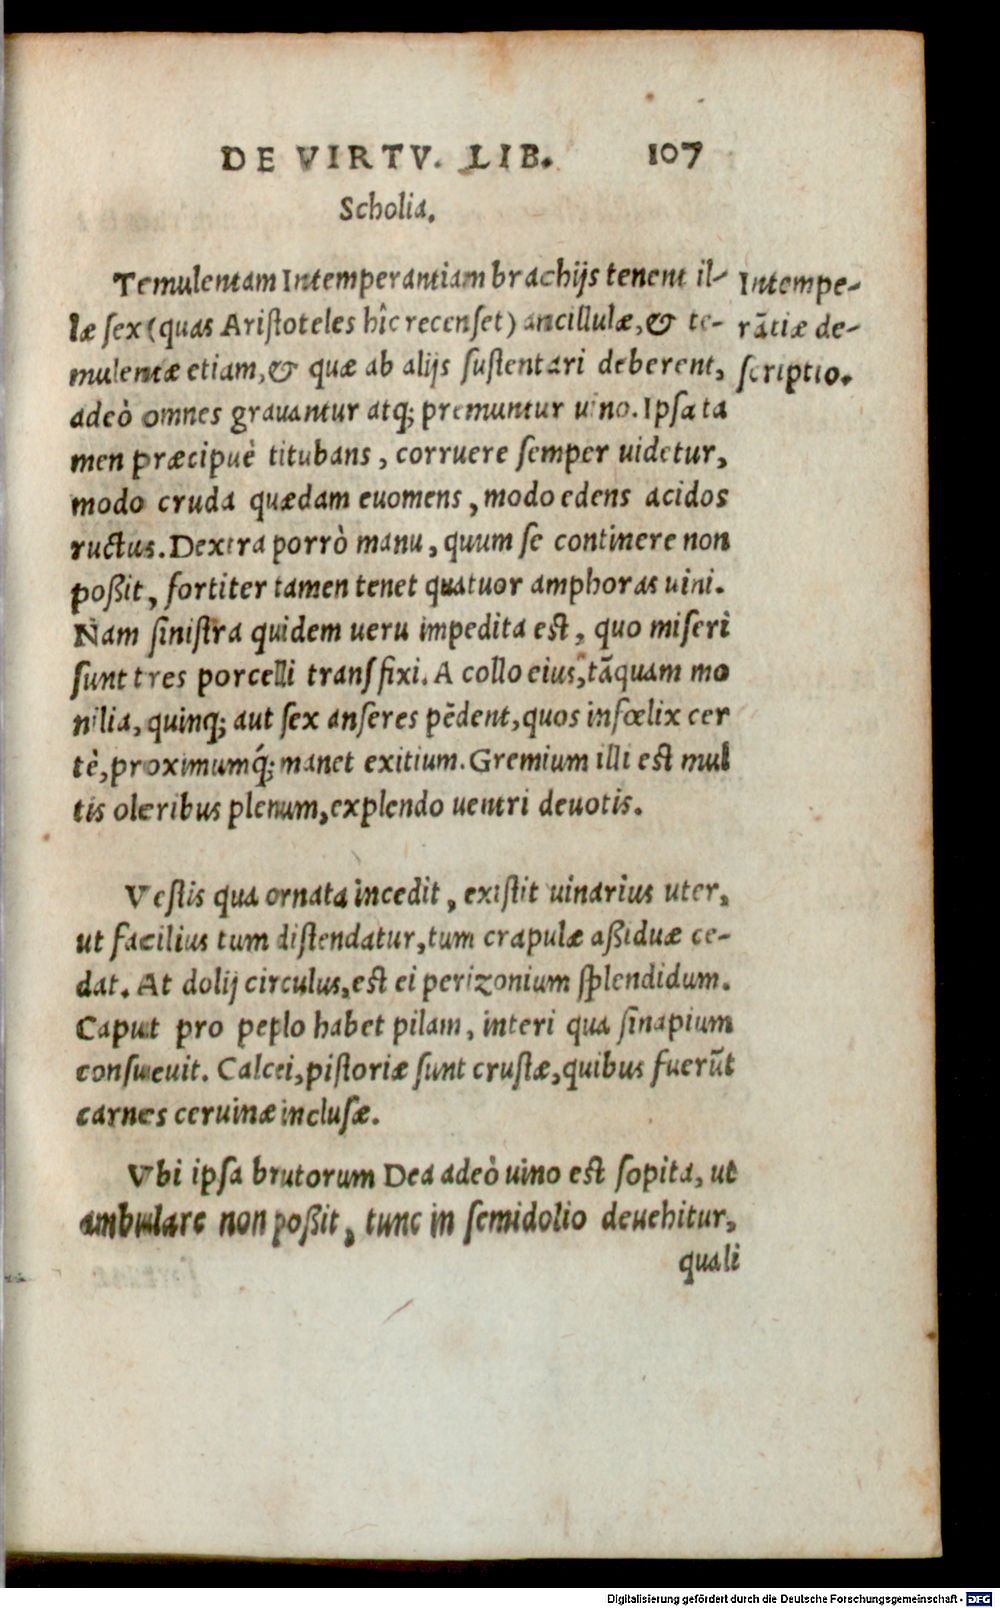 DE VIRTV. LIB. 107
Scholia.
Temulentam Intemperantiam brachijs tenent il-
læ sex (quas Aristoteles hîc recenset) ancillulæ, & te-
mulentæ etiam, & quæ ab alijs sustentari deberent,
adeò omnes grauantur atq; premuntur uino. Ipsa ta
men præcipuè titubans, corruere semper uidetur,
modo cruda quædam euomens, modo edens acidos
ructus. Dextra porrò manu, quum se continere non
poßit, fortiter tamen tenet quatuor amphoras uini.
Nam sinistra quidem ueru impedita est, quo miseri
sunt tres porcelli transfixi. A collo eius, tãquam mo
nilia, quinq; aut sex anseres pẽdent, quos infœlix cer
tè, proximumq́; manet exitium. Gremium illi est mul
tis oleribus plenum, explendo uentri deuotis.
Intempe-
rãtiæ de-
scriptio.
Vestis qua ornata incedit, existit uinarius uter,
ut facilius tum distendatur, tum crapulæ aßiduæ ce-
dat. At dolij circulus, est ei perizonium splendidum.
Caput pro peplo habet pilam, interi qua sinapium
consueuit. Calcei, pistoriæ sunt crustæ, quibus fuerũt
carnes ceruinæ inclusæ.
Vbi ipsa brutorum Dea adeò uino est sopita, ut
ambulare non poßit, tunc in semidolio deuehitur,
quali
Digitalisierung gefördert durch die Deutsche Forschungsgemeinschaft - DFG